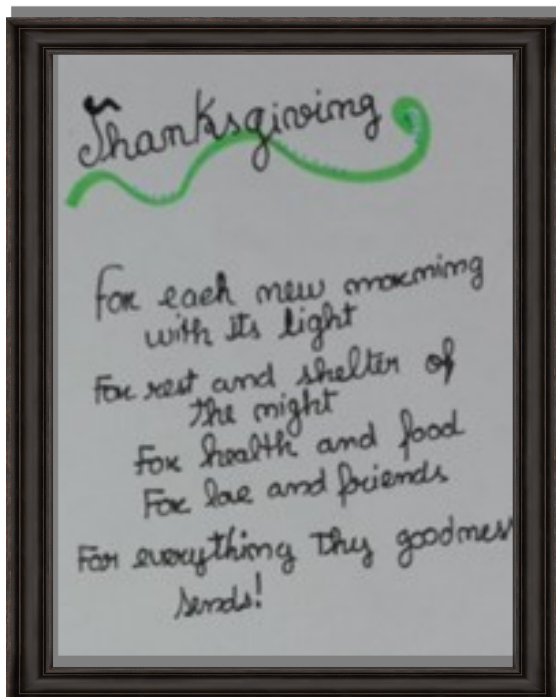 Thanksgiving
For each new morning
with its light
For rest and shelter of
the night
For health and food
For love and friends
For everything thy goodness
sends!